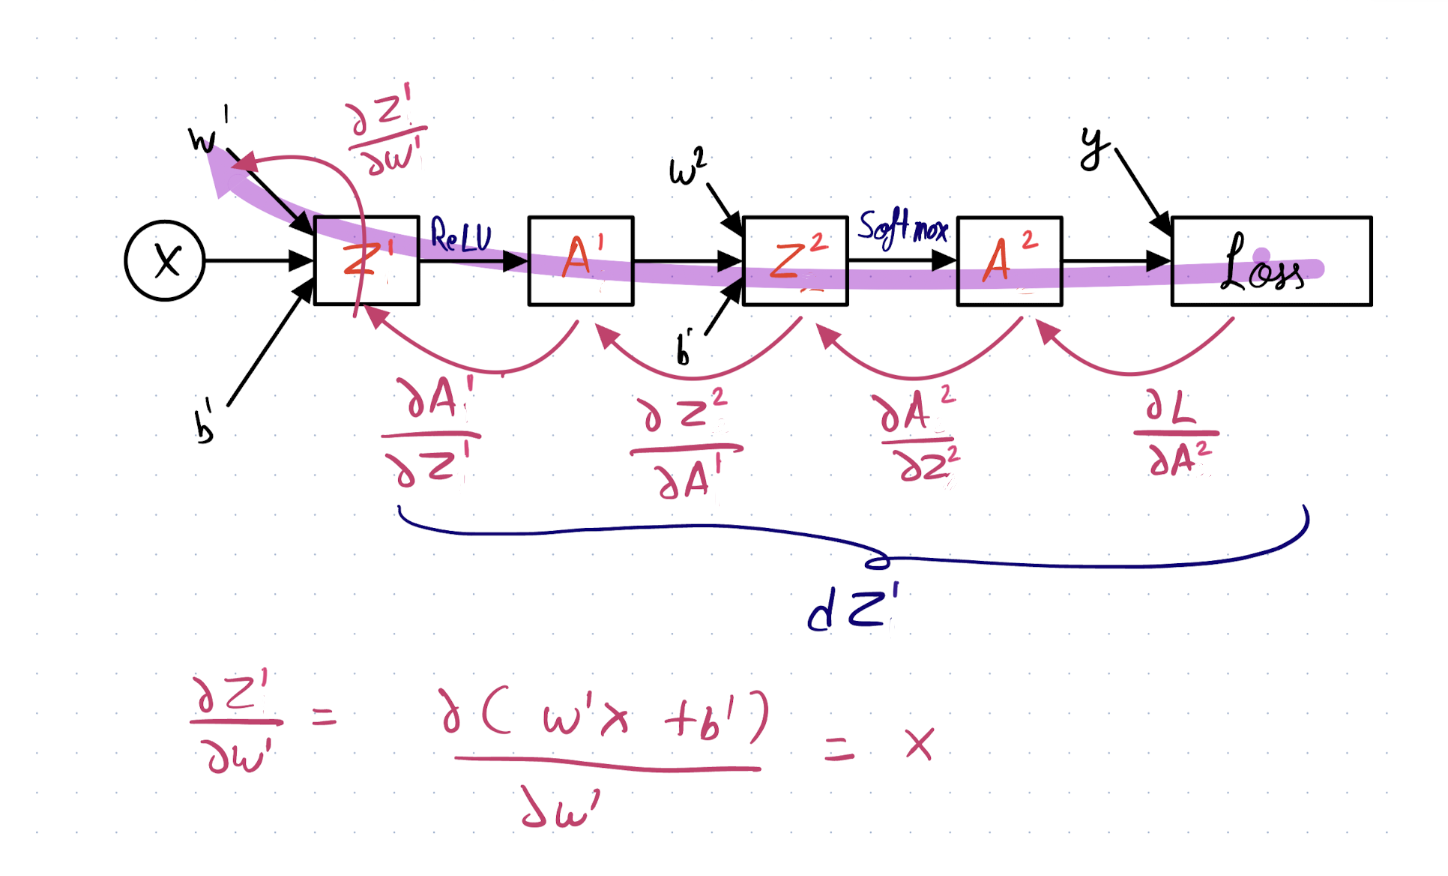 w¹
∂Z¹
∂w¹
w²
y
X
Z¹
ReLU
A¹
Z²
Softmax
A²
Loss
b¹
b¹
∂A¹
∂Z¹
∂Z²
∂A¹
∂A²
∂Z²
∂L
∂A²
dZ¹
∂Z¹
∂w¹
=
∂(w¹x + b¹)
∂w¹
= x